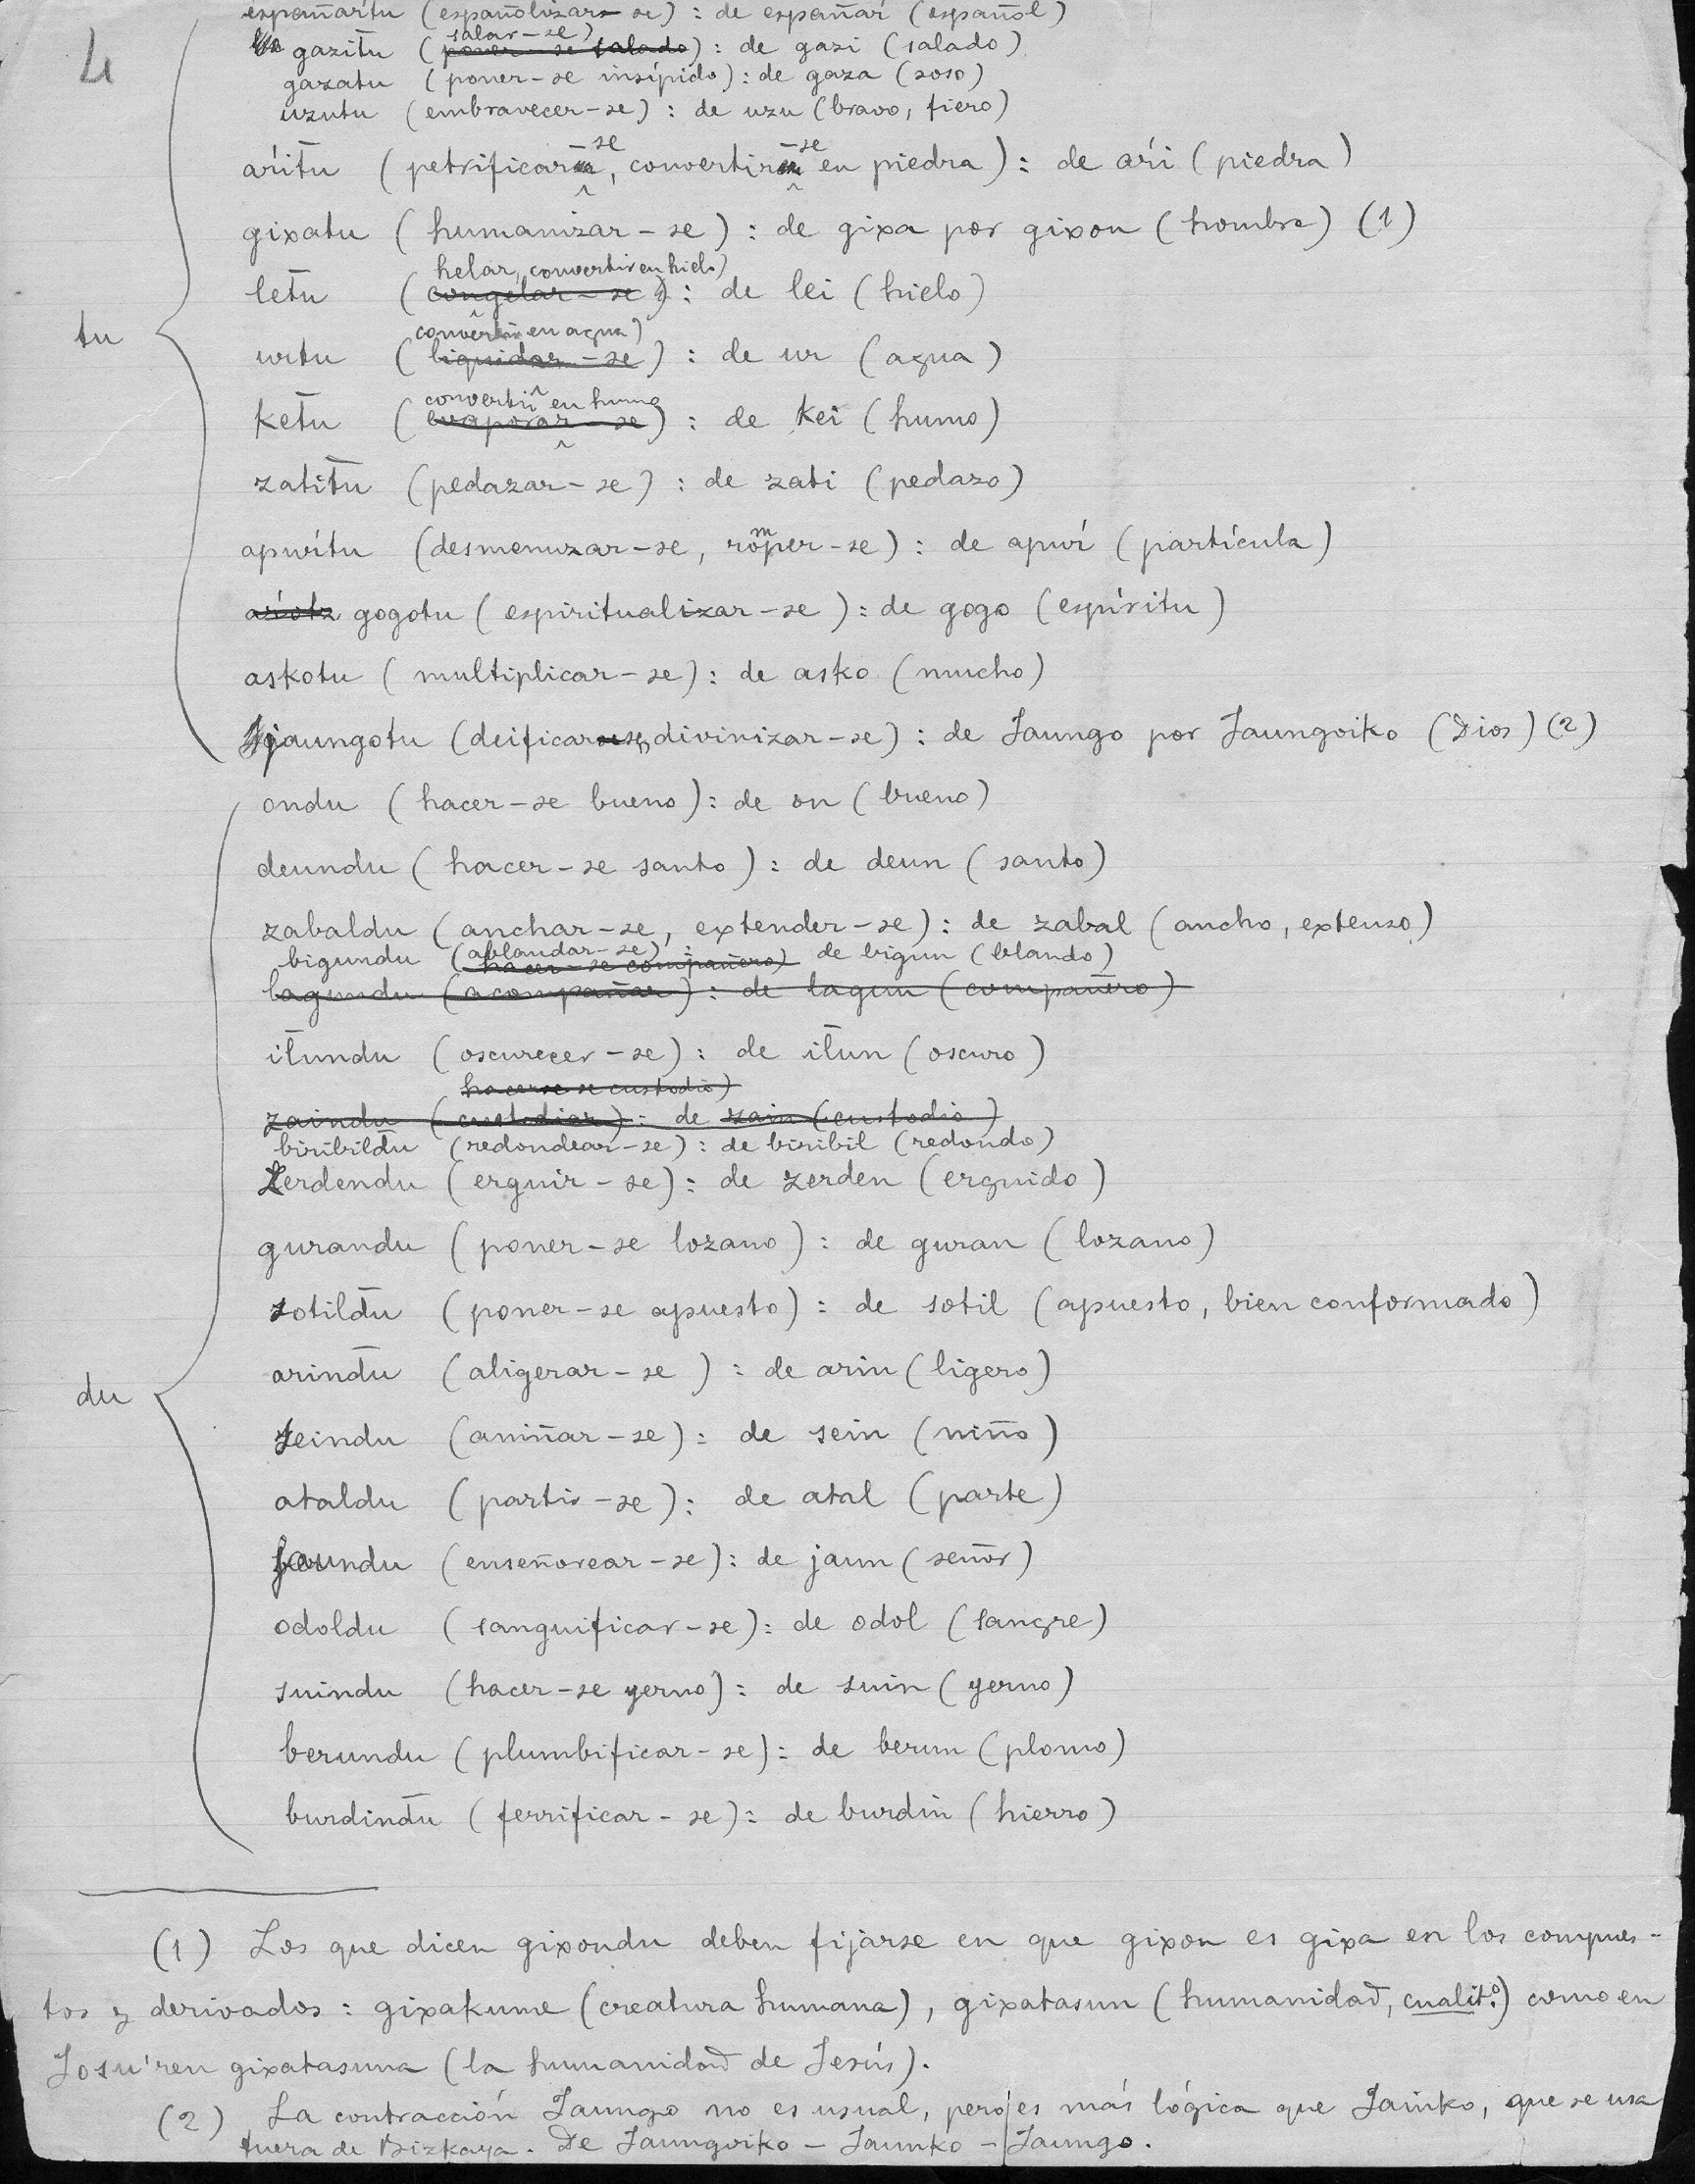 4
españaŕtu (españolizar-se) : de españaŕ (español)
salar-se)
gazit̄u (poner-se salado) : de gazi (salado)
gazatu (poner-se insípido) : de gaza (soso)
uzutu (embravecer-se) : de uzu (bravo, fiero)
-se -se
aŕit̄u (petrificar, convertir en piedra) : de aŕi (piedra)
gixatu (humanizar-se) : de gixa por gixon (hombre) (1)
helar, convertir en hielo)
let̄u (congelar-se) : de lei (hielo)
tu
convertir en agua)
urtu (liquidar-se) : de ur (agua)
convertir en humo
ket̄u (evaporar-se) : de kei (humo)
zatit̄u (pedazar-se) : de zati (pedazo)
apuŕtu (desmenuzar-se, romper-se) : de apuŕ (partícula)
aŕotz gogotu (espiritualizar-se) : de gogo (espíritu)
askotu (multiplicar-se) : de asko (mucho)
jaungotu (deificar-se, divinizar-se) : de Jaungo por Jaungoiko (Dios) (2)
ondu (hacer-se bueno) : de on (bueno)
deundu (hacer-se santo) : de deun (santo)
zabaldu (anchar-se, extender-se) : de zabal (ancho, extenso)
bigundu (ablandar-se) : de bigun (blando)
hacer-se compañero)
lagundu (acompañar) : de lagun (compañero)
it̄undu (oscurecer-se) : de it̄un (oscuro)
hacerse se custodio)
zaindu (custodiar) : de zain (custodio)
biribild̄u (redondear-se) : de biribil (redondo)
zerdendu (erguir-se) : de zerden (erguido)
gurandu (poner-se lozano) : de guran (lozano)
sotild̄u (poner-se apuesto) : de sotil (apuesto, bien conformado)
arind̄u (aligerar-se) : de arin (ligero)
du
seindu (aniñar-se) : de sein (niño)
ataldu (partir-se) : de atal (parte)
jaundu (enseñorear-se) : de jaun (señor)
odoldu (sanguificar-se) : de odol (sangre)
suindu (hacer-se yerno) : de suin (yerno)
berundu (plumbificar-se) : de berun (plomo)
burdind̄u (ferrificar-se) : de burdin (hierro)
(1) Los que dicen gixondu deben fijarse en que gixon es gixa en los compues-
tos y derivados : gixakume (creatura humana), gixatasun (humanidad, cualit.º) como en
Josu'ren gixatasuna (la humanidad de Jesús).
(2) La contracción Jaungo no es usual, pero es más lógica que Jainko, que se usa
fuera de Bizkaya. De Jaungoiko - Jaunko - Jaungo.